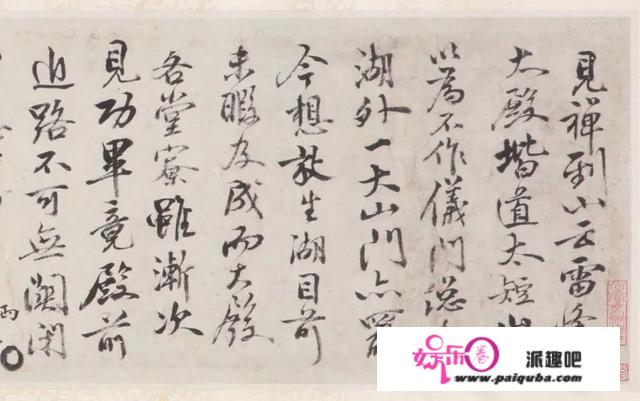 見禪到小云雷峰
大殿堦道太短
以為不作儀門
湖外一大山門亦
今想放生湖目前
未暇及成而大殿
各堂寮雖漸次
見功畢竟殿前
近路不可無闌
娱乐圈
派趣吧
www.paiquba.com